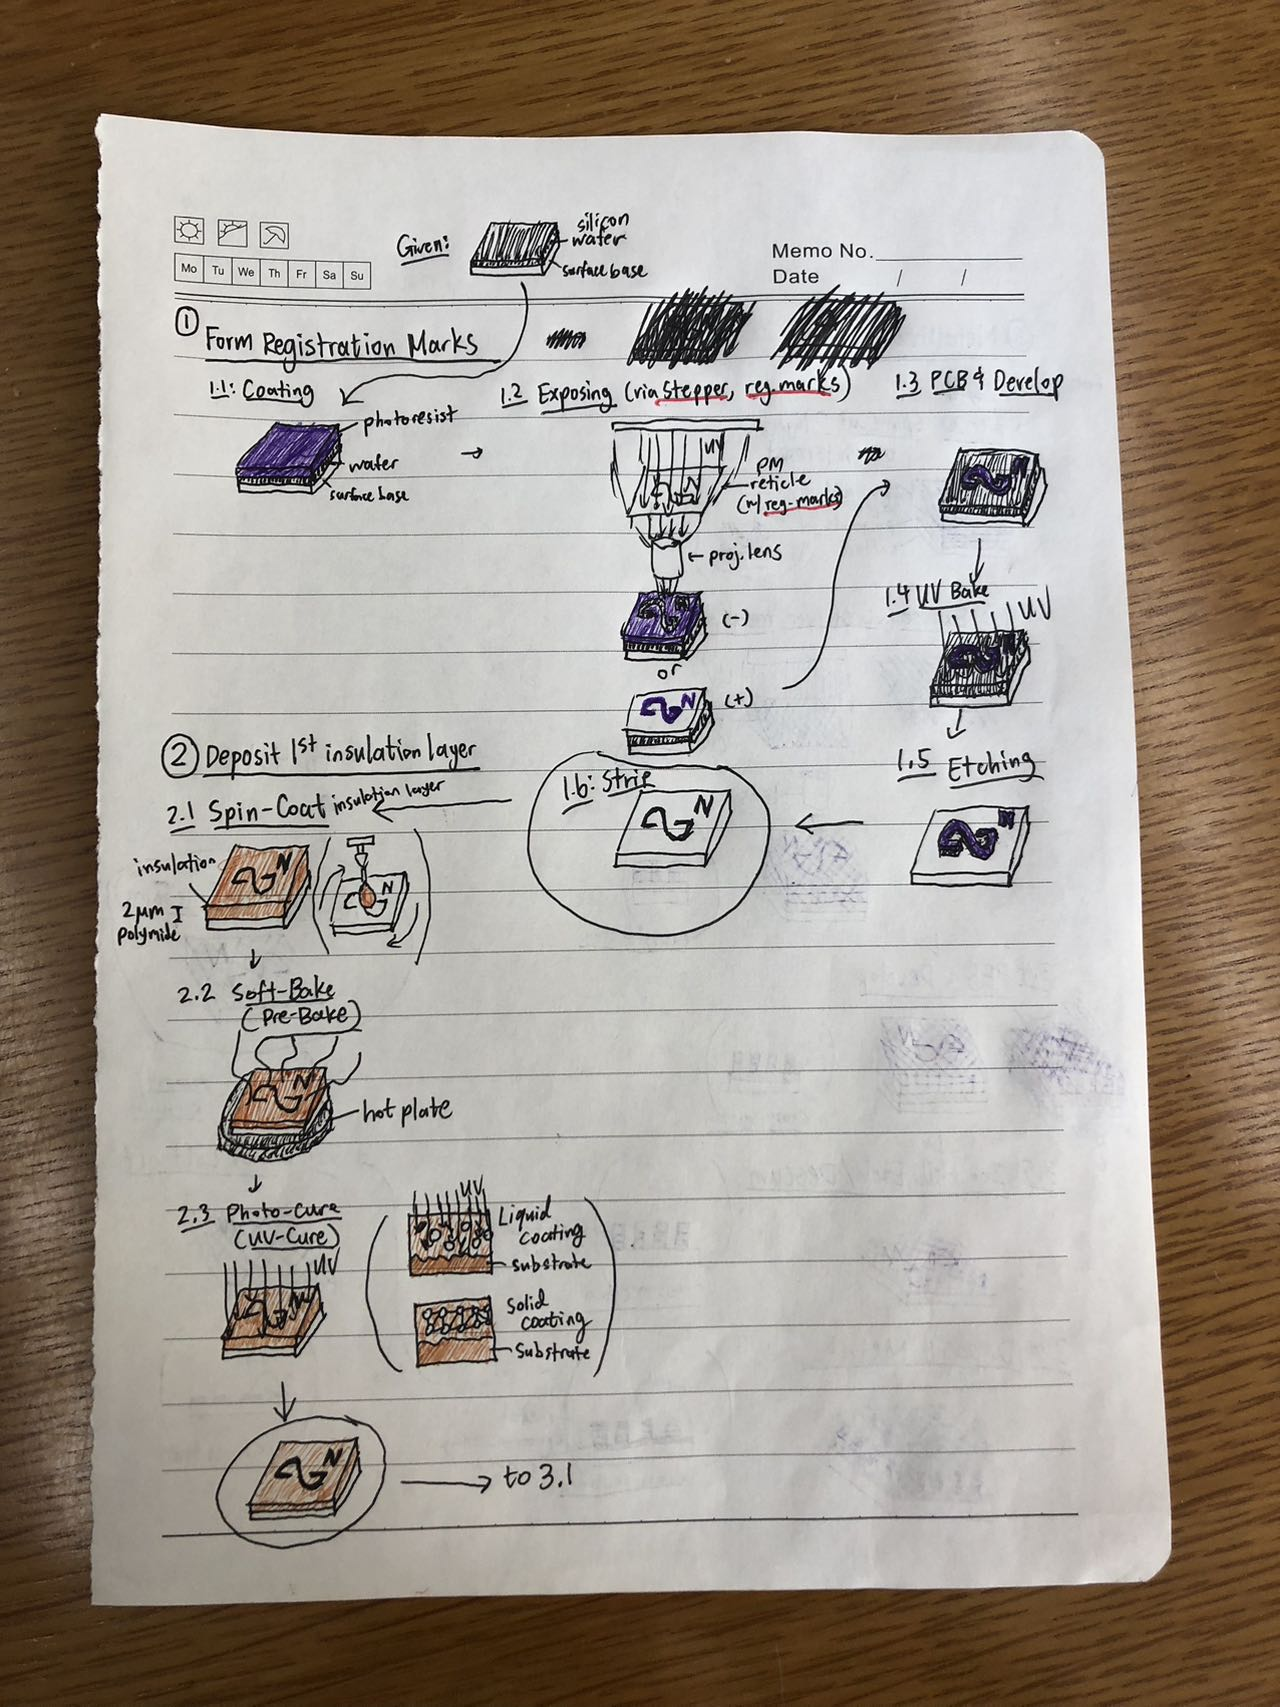 Given:
silicon
wafer
surface base
Mo Tu We Th Fr Sa Su
Memo No.
Date / /
① Form Registration Marks
1.1: Coating
photoresist
wafer
surface base
1.2 Exposing (via stepper, reg. marks)
UV
PM
reticle
(w/ reg-marks)
proj. lens
N
(-)
or
N
(+)
1.3 PCB & Develop
N
1.4 UV Bake
UV
1.5 Etching
N
1.6: Strip
N
② Deposit 1st insulation layer
2.1 Spin-Coat insulation layer
insulation
2μm I
polymide
N
N
2.2 Soft-Bake
(Pre-Bake)
N
hot plate
2.3 Photo-Cure
(UV-Cure)
UV
UV
Liquid
coating
substrate
Solid
coating
substrate
N
to 3.1